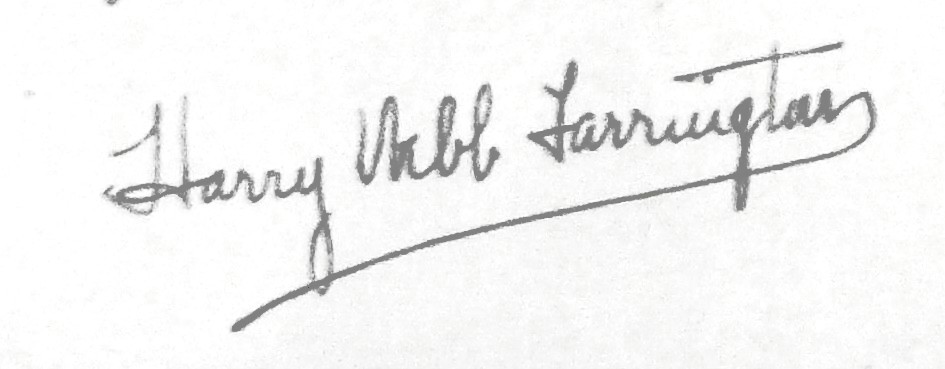 Harry Webb Farrington